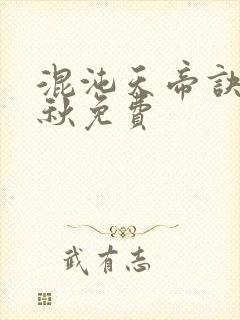 混沌天帝訣
秋免費
武有志